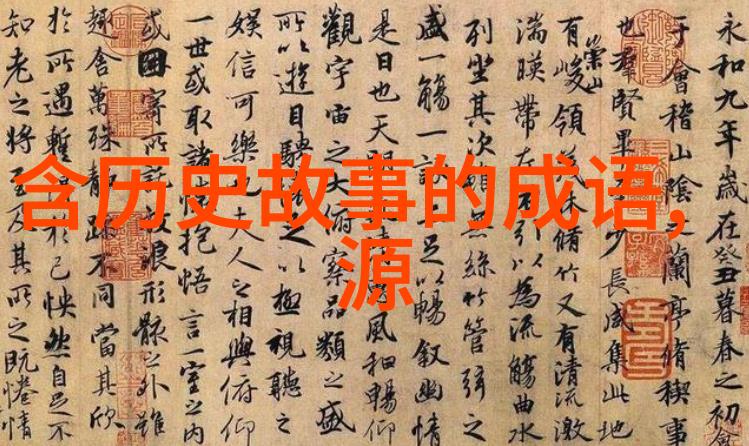 含历史故事的成语,
源
永和九年歲在癸丑暮春之初會
于會稽山陰之蘭亭脩稧事
也羣賢畢少長咸集此地
有崇山峻領脩竹又有清流激
湍暎帶左引以為流觴曲水
列坐其次雖無絲竹管弦之
盛一觴一詠足以暢叙幽情
是日也天風和暢仰
觀宇宙之大俯察品類之盛
所以遊目騁之以極視聽之
娛信可樂也夫人之相與俯仰
一世或取諸抱悟言一室之內
或因寄所託放浪形骸之外雖
趣舍萬殊靜躁不同當其欣
於所遇暫得於己怏然自足不
知老之將至及其所之既惓情